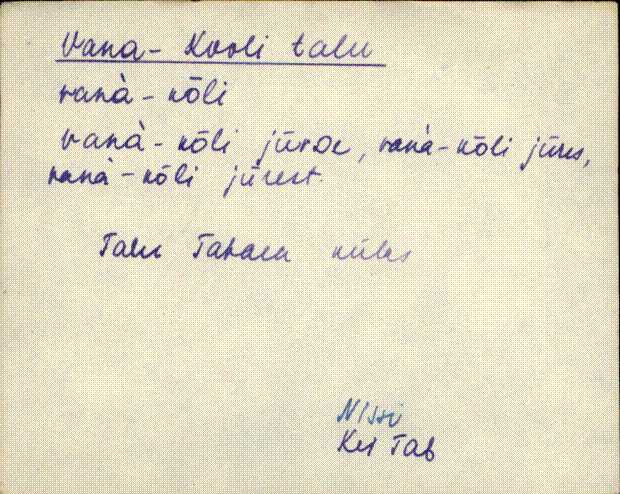 Vana-Kooli talu
vanà-kōli
vanà-kōli jūrDe, vanà-kōli jūres,
vanà-kōli jūrest.
Talu Tabara külas
Nissi
Kei Tab